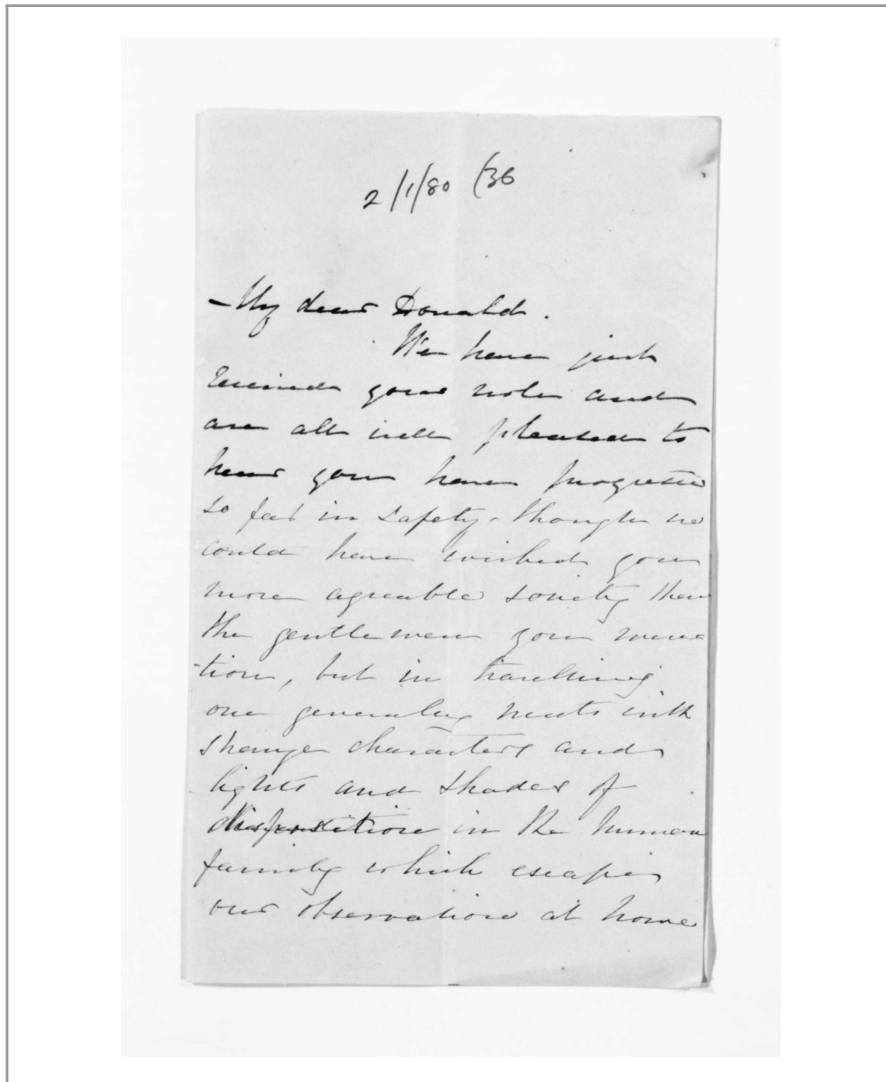 2/1/80 (36
My dear Donald.
We have just
received your note and
are all well pleased to
hear you have progressed
so far in safety - though we
could have wished you
more agreable society than
the gentlemen you men
-tion, but in travelling
one generaley meets with
strange characters and
lights and shades of
disposition in the human
family which escapes
our observation at home